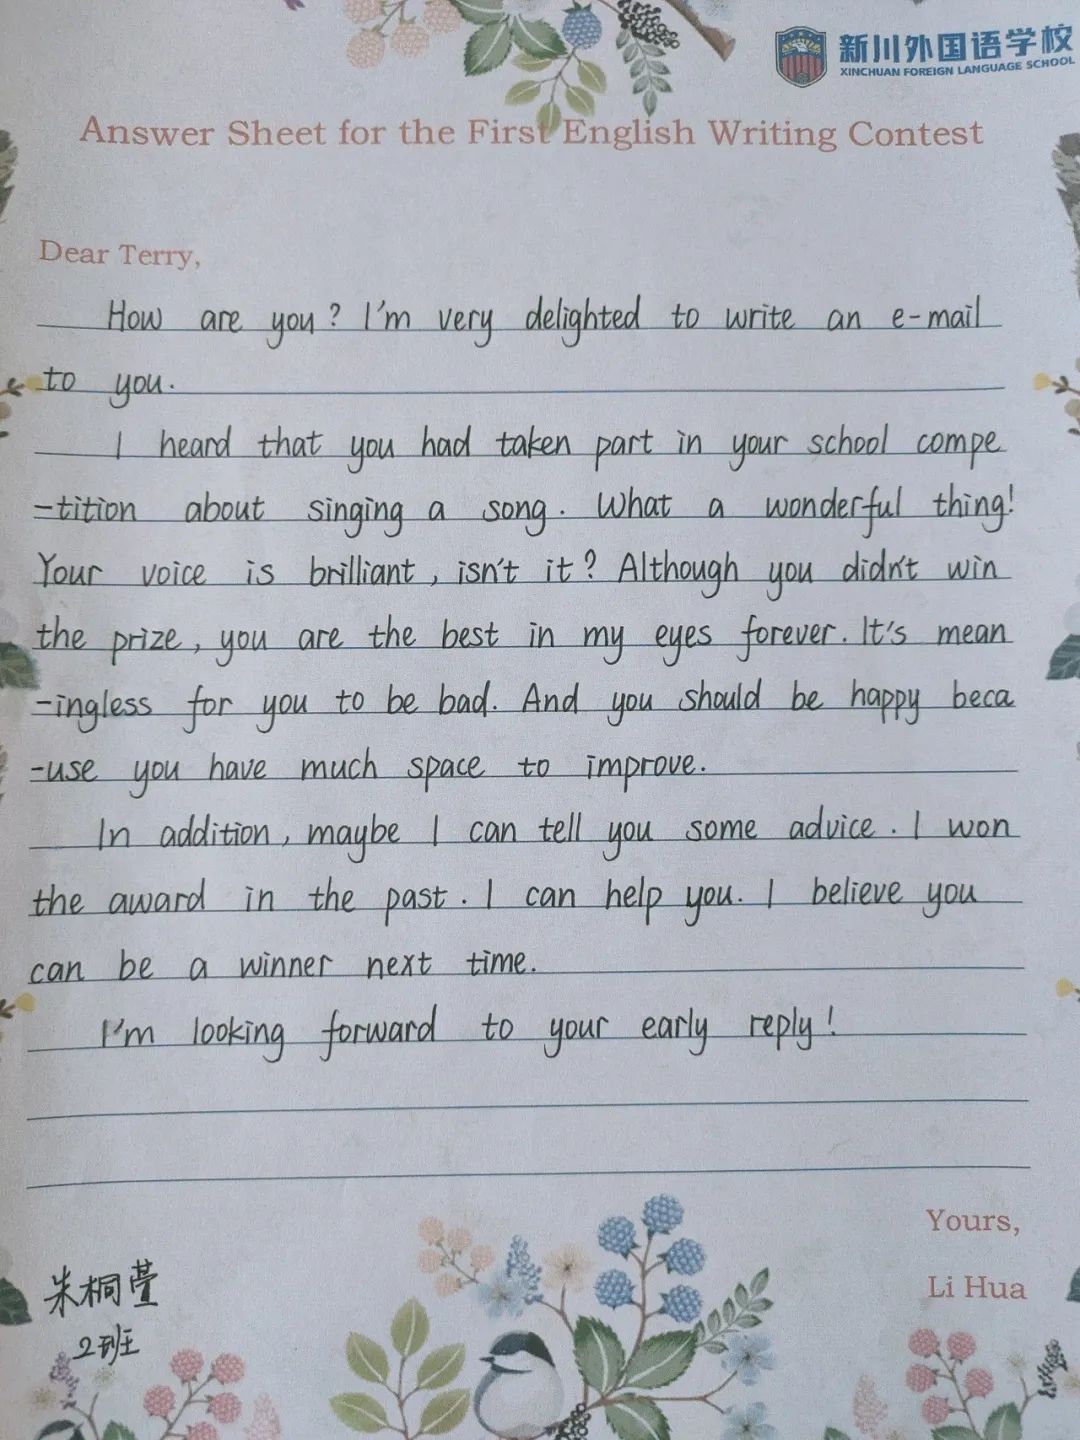 新川外国语学校
XINCHUAN FOREIGN LANGUAGE SCHOOL
Answer Sheet for the First English Writing Contest
Dear Terry,
How are you? I'm very delighted to write an e-mail
to you.
I heard that you had taken part in your school compe
-tition about singing a song. What a wonderful thing!
Your voice is brilliant, isn't it? Although you didn't win
the prize, you are the best in my eyes forever. It's mean
-ingless for you to be bad. And you should be happy beca
-use you have much space to improve.
In addition, maybe I can tell you some advice. I won
the award in the past. I can help you. I believe you
can be a winner next time.
I'm looking forward to your early reply!
Yours,
Li Hua
朱桐萱
2班